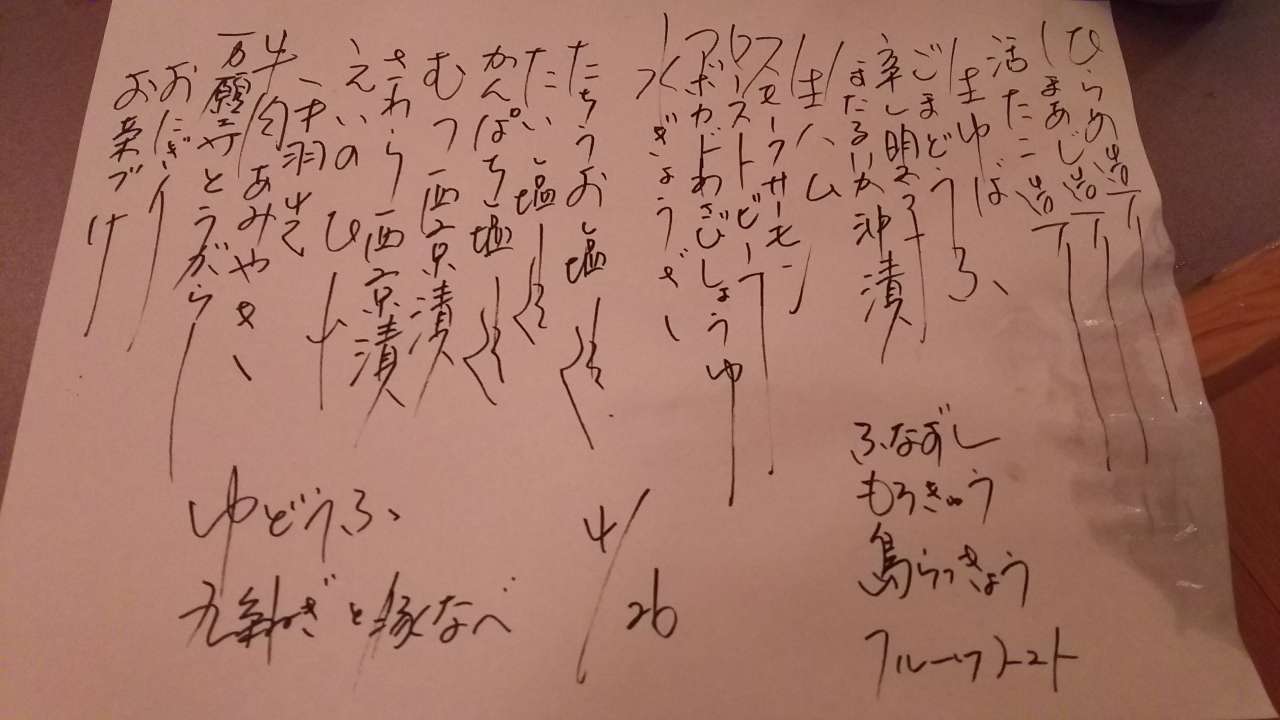 ひらめ造り
しまあじ造り
活たこ造り
生ゆば
ごまどうふ
辛し明太子
ほたるいか沖漬
生ハム
スモークサーモン
ローストビーフ
アボカドわさびしょうゆ
水ぎょうざ
たちうお塩焼
たい塩焼
かんぱち塩焼
むつ西京漬
さわら西京漬
えいのひれ
手羽先
牛肉あみやき
万願寺とうがらし
おにぎり
お茶づけ
ふなずし
もろきゅう
島らっきょう
フルーツトマト
ゆどうふ
九条ねぎと豚なべ
4/26